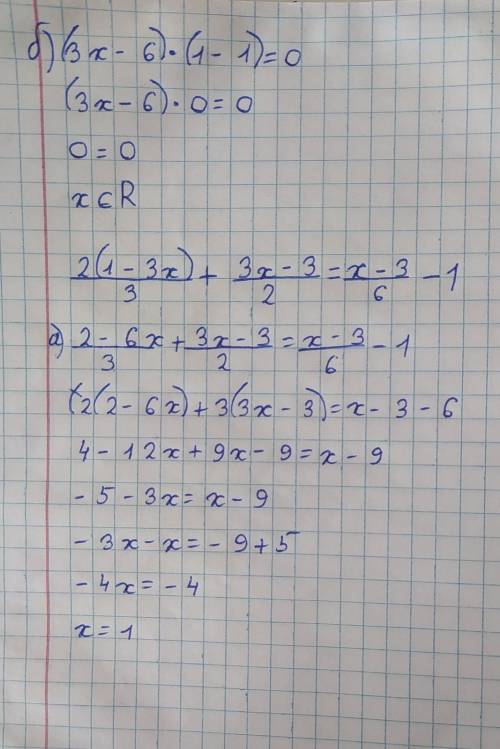 б) (3x - 6) · (1 - 1) = 0
(3x - 6) · 0 = 0
0 = 0
x ∈ R
2(1 - 3x)/3 + 3x - 3/2 = x - 3/6 - 1
а) 2 - 6x/3 + 3x - 3/2 = x - 3/6 - 1
(2(2 - 6x) + 3(3x - 3) = x - 3 - 6
4 - 12x + 9x - 9 = x - 9
- 5 - 3x = x - 9
- 3x - x = - 9 + 5
- 4x = - 4
x = 1